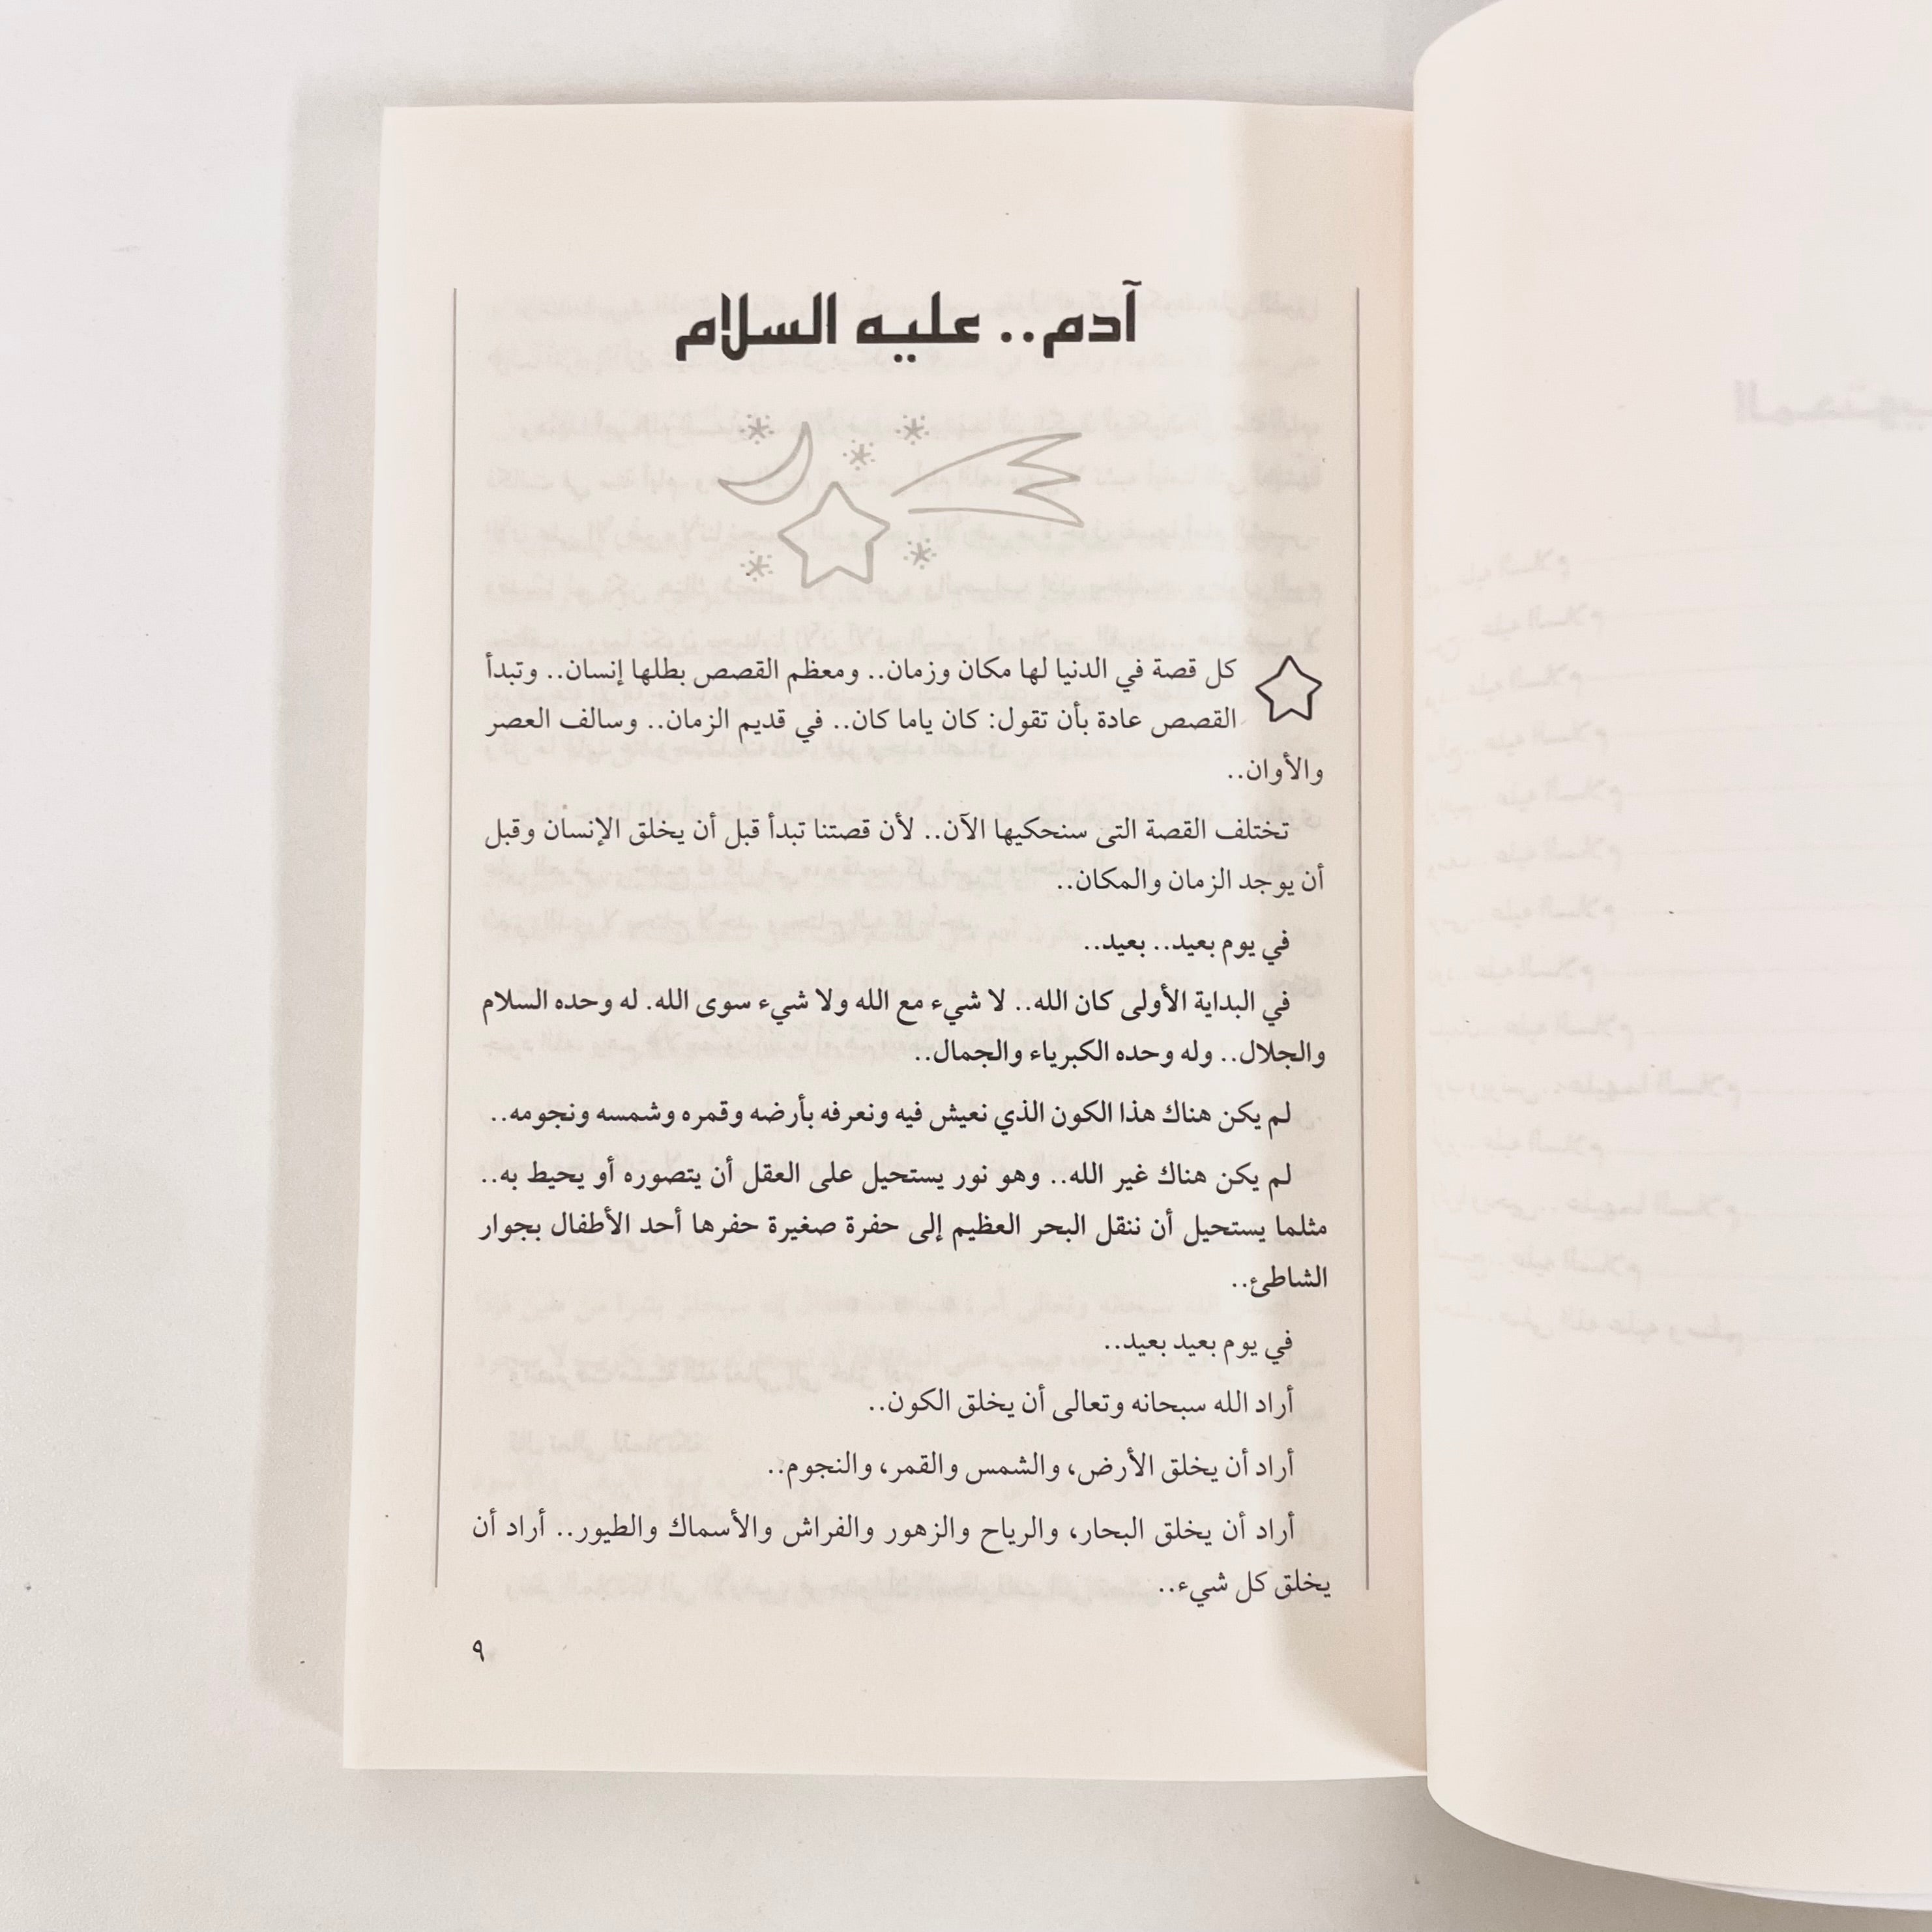 آدم.. عليه السلام
كل قصة في الدنيا لها مكان وزمان.. ومعظم القصص بطلها إنسان.. وتبدأ
القصص عادة بأن تقول: كان ياما كان.. في قديم الزمان.. وسالف العصر
والأوان..
تختلف القصة التى سنحكيها الآن.. لأن قصتنا تبدأ قبل أن يخلق الإنسان وقبل
أن يوجد الزمان والمكان..
في يوم بعيد.. بعيد..
في البداية الأولى كان الله.. لا شيء مع الله ولا شيء سوى الله. له وحده السلام
والجلال.. وله وحده الكبرياء والجمال..
لم يكن هناك هذا الكون الذي نعيش فيه ونعرفه بأرضه وقمره وشمسه ونجومه..
لم يكن هناك غير الله.. وهو نور يستحيل على العقل أن يتصوره أو يحيط به..
مثلما يستحيل أن ننقل البحر العظيم إلى حفرة صغيرة حفرها أحد الأطفال بجوار
الشاطئ..
في يوم بعيد بعيد..
أراد الله سبحانه وتعالى أن يخلق الكون..
أراد أن يخلق الأرض، والشمس والقمر، والنجوم..
أراد أن يخلق البحار، والرياح والزهور والفراش والأسماك والطيور.. أراد أن
يخلق كل شيء..
٩